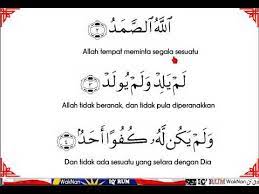 اللَّهُ الصَّمَدُ ۝٢
Allah tempat meminta segala sesuatu
لَمْ يَلِدْ وَلَمْ يُولَدْ ۝٣
Allah tidak beranak, dan tidak pula diperanakkan
وَلَمْ يَكُن لَّهُ كُفُوًا أَحَدٌ ۝٤
Dan tidak ada sesuatu yang setara dengan Dia
WakNan
WakNan